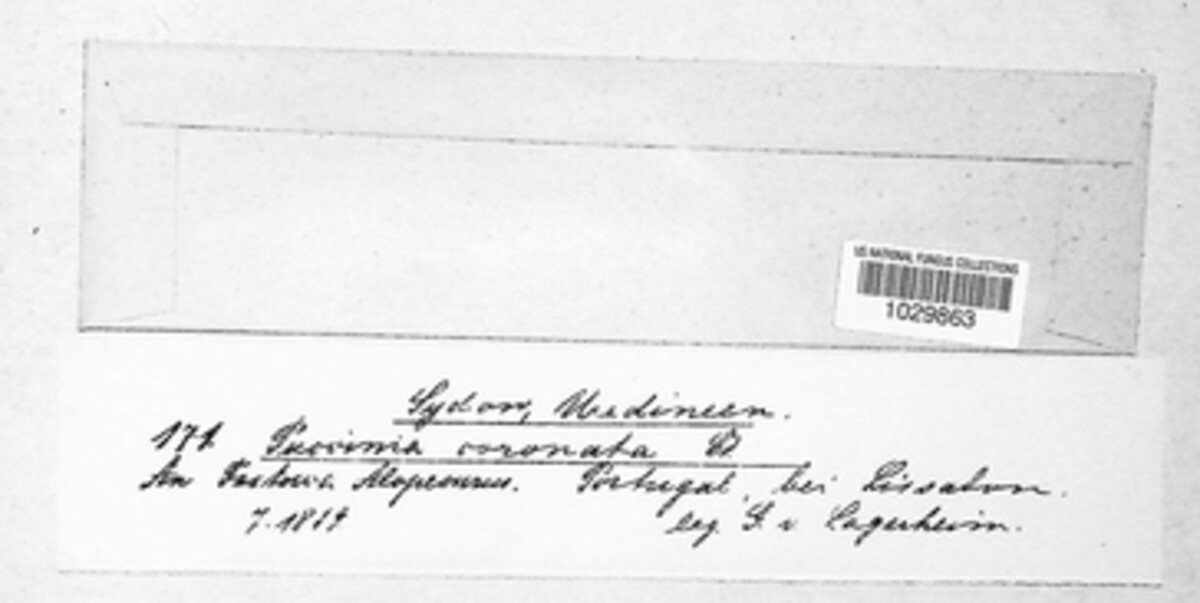 US NATIONAL FUNGUS COLLECTIONS
1029863
Sydow, Uredineen.
171. Puccinia coronata
An Festuca Alopecurus. Portugal, bei Lissabon.
7. leg. G. v. Lagerheim.